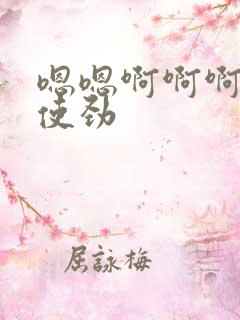 嗯嗯啊啊啊
使劲
屈詠梅